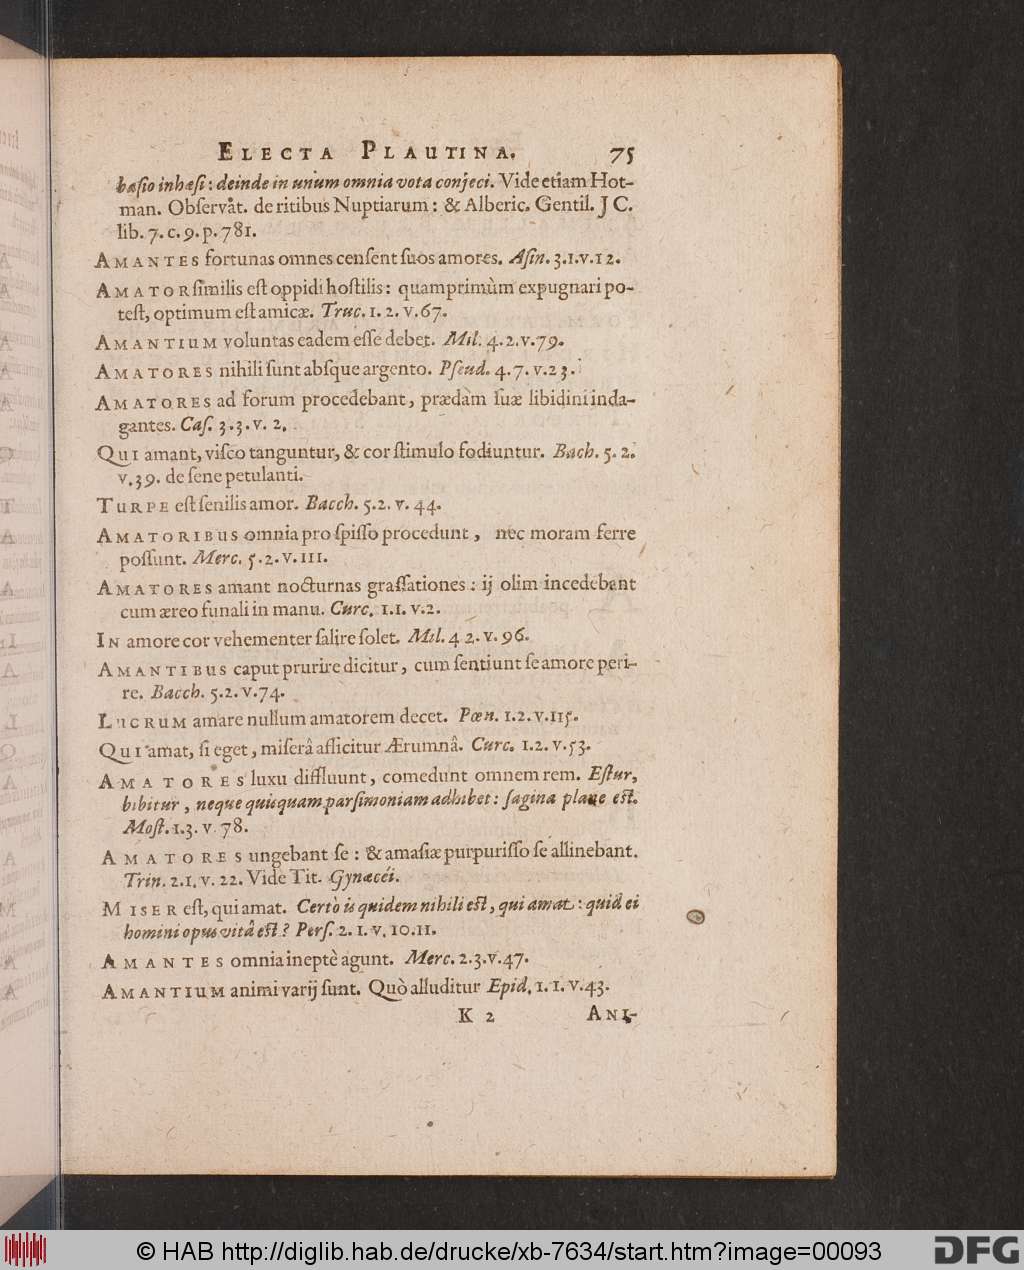 ELECTA PLAUTINA. 75
basio inhæsi: deinde in unum omnia vota conjeci. Vide etiam Hot-
man. Observat. de ritibus Nuptiarum: & Alberic. Gentil. J C.
lib. 7. c. 9. p. 781.
AMANTES fortunas omnes censent suos amores. Asin. 3.1.v.12.
AMATOR similis est oppidi hostilis: quamprimùm expugnari po-
test, optimum est amicæ. Truc. 1. 2. v.67.
AMANTIUM voluntas eadem esse debet. Mil. 4.2.v.79.
AMATORES nihili sunt absque argento. Pseud. 4.7. v.23.
AMATORES ad forum procedebant, prædam suæ libidini inda-
gantes. Cas. 3.3. v. 2.
QUI amant, visco tanguntur, & cor stimulo fodiuntur. Bach. 5. 2.
v.39. de sene petulanti.
TURPE est senilis amor. Bacch. 5.2. v. 44.
AMATORIBUS omnia pro spisso procedunt, nec moram ferre
possunt. Merc. 5.2.v.111.
AMATORES amant nocturnas grassationes: ij olim incedebant
cum æreo funali in manu. Curc. 1.1. v.2.
IN amore cor vehementer salire solet. Mil. 4 2. v. 96.
AMANTIBUS caput prurire dicitur, cum sentiunt se amore peri-
re. Bacch. 5.2. v.74.
LUCRUM amare nullum amatorem decet. Pœn. 1.2.v.115.
QUI amat, si eget, miserâ afficitur Ærumnâ. Curc. 1.2. v.53.
AMATORES luxu diffluunt, comedunt omnem rem. Estur,
bibitur, neque quisquam parsimoniam adhibet: sagina plane est.
Most. 1.3. v. 78.
AMATORES ungebant se: & amasiæ purpurisso se allinebant.
Trin. 2.1. v. 22. Vide Tit. Gynæcéi.
MISER est, qui amat. Certò is quidem nihili est, qui amat: quid ei
homini opus vitâ est? Pers. 2. 1. v. 10.11.
AMANTES omnia ineptè agunt. Merc. 2.3.v.47.
AMANTIUM animi varij sunt. Quò alluditur Epid. 1. 1. v.43.
K 2 ANI-
© HAB http://diglib.hab.de/drucke/xb-7634/start.htm?image=00093
DFG